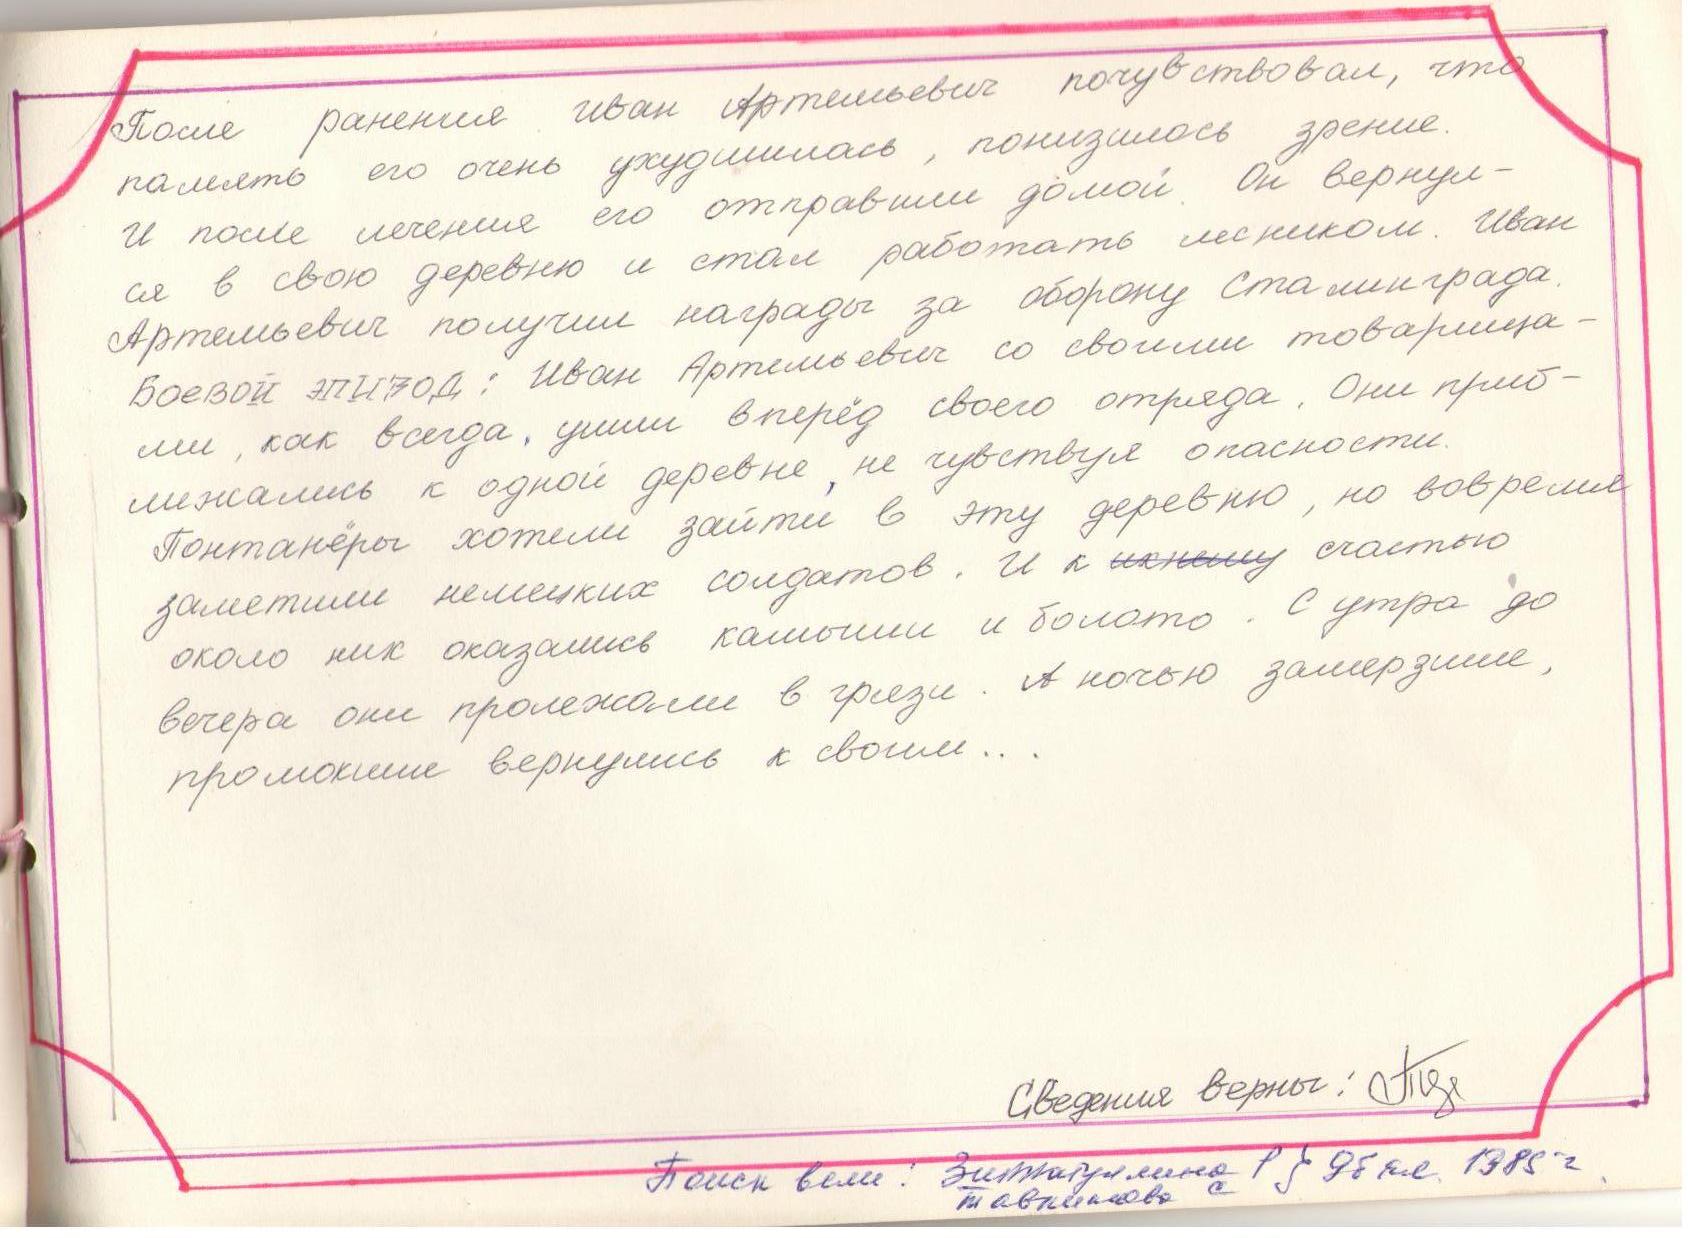 После ранения Иван Артемьевич почувствовал, что
память его очень ухудшилась, понизилось зрение.
И после лечения его отправили домой. Он вернул-
ся в свою деревню и стал работать лесником. Иван
Артемьевич получил награды за оборону Сталинграда.
Боевой эпизод: Иван Артемьевич со своими товарища-
ми, как всегда, ушли вперёд своего отряда. Они приб-
лижались к одной деревне, не чувствуя опасности.
Понтанёры хотели зайти в эту деревню, но вовремя
заметили немецких солдатов. И к ихнему счастью
около них оказались камыши и болото. С утра до
вечера они пролежали в грязи. А ночью замерзшие,
промокшие вернулись к своим...
Сведения верны:
Поиск вели: Р } 9б кл. 1985 г.
С